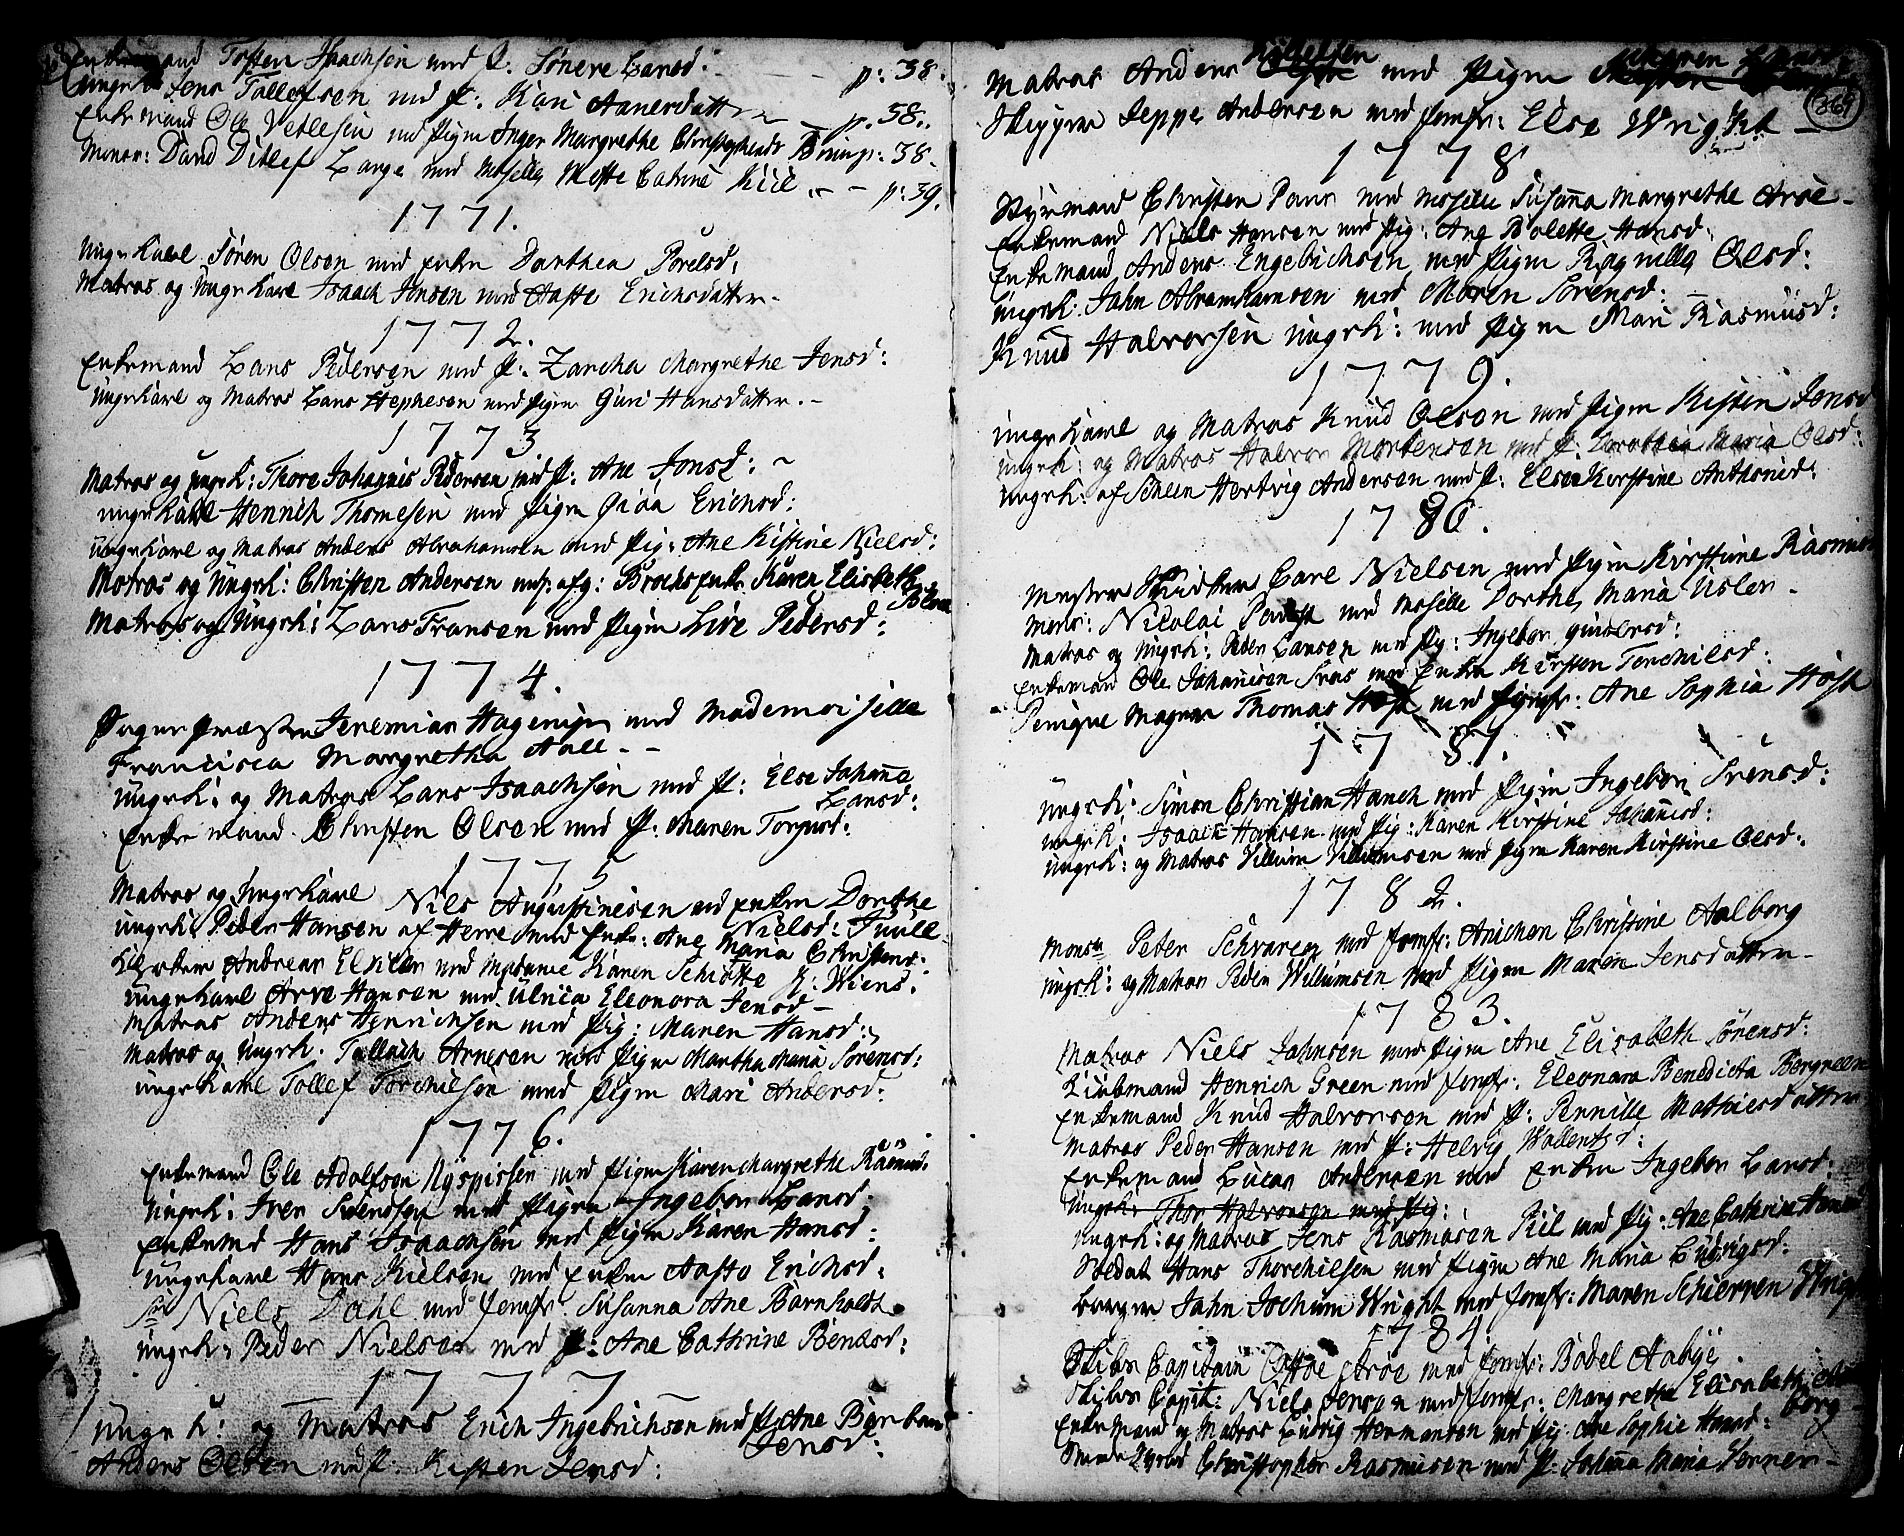 Enkemand Tosten Isachsen med P. Sønere Larsd: p: 38.
Ungk: Jens Tollefsen med P. Kari Aanersdatter p. 58.
Enkemand Ole Vetlesen med Pigen Inger Margrethe p: 38.
Monsr: David Ditlef Lange med Mselle Mette Catrine Kiil p: 39.
1771.
Ungekarl Søren Olsen med Enken Dorthea Povelsd:
Matros og Ungekarl Isaach Jensen med Aaste Erichsdatter
1772.
Enkemand Lars Pedersen med P: Zaracha Margrethe Jensd:
Ungekarl og Matros Lars Stephesen med Pigen Guri Hansdatter.
1773
Matros og Ungk: Thore Johannis Pedersen med P: Ane Jonsd:
Ungekarl Henrich Thomesen med Pigen Erichsd:
Ungekarl og Matros Anders Abrahamsen med Pig: Ane Kistine Nielsd:
Matros og Ungk: Christen Andersen med afg: Brochs Enke Karen Elisbeth
Matros og Ungk: Lars Fransen med Pigen Live Pedersd:
1774.
Sogne Præsten Jeremias Hagerup med Mademoiselle
Francisca Margretha Aall
Ungk: og Matros Lars Isaachsen med P: Else Johanna
Larsd:
Enkemand Christen Olsen med P: Maren Torjusd:
1775
Matros og Ungekarl Niels Augustinesen med Enken Dorthe
Nielsd: Juull
Ungk: Peder Hansen af Herre med Enke: Ane Maria Christens:
Andreas med Madame Karen Schiøtte S: Wiens.
Ungekarl Arve Hansen med Ulrica Eleonora Jensd
Matros Anders Henrichsen med Pig: Maren Hansd:
Matros og Ungk. Tallach Arnesen med Pigen Martha Maria Sørensd:
Ungekarl Tollef Torchilsen med Pigen Mari Andersd:
1776.
Enkemand Ole Adolfsen Nyspissen med Pigen Karen Margrethe Rasmusd.
Ungk: Iver Svendsen med Pigen Ingebor Larsd:
Enkemd Hans Isaachsen med Pigen Karen Hansd:
Ungekarl Hans Kielsen med Enken Aaste Erichsd:
Sr Niels Dahl med Jomfr Susanna Ane Barnholdt
Ungk: Peder Nielsen med P: Ane Cathrine Bendsd:
1777
Ungk: og Matros Erich Ingebrichsen med P. Ane Barbara
Jensd:
Anders Olsen med P. Kisten Jensd:
Matros Anders med Pigen Maren
364
Skipper Jeppe Andersen med Jomfr: Else Wright
1778
Styrmand Christen Paus med Mselle Susanna Margrethe Arøe
Enkemand Niels Hansen med Pig: Ane Bolette Hansd:
Enkemand Anders Engebrichsen med Pigen Ragnilla Olsd:
Ungk. Jahn Abramhamsen med Maren Sørensd:
Knud Halvorsen Ungk: med Pigen Mari Rasmusd:
1779.
Ungekarl og Matros Knud Olsen med Pigen Kistin Jensd
Ungk: og Matros Halvor Mortensen med P: Dorothea Maria Olsd:
Ungk: af Scheen Hertvig Andersen med P: Else Kirstine Anthonisd:
1780.
Mester Carl Nielsen med Pigen Kirstine Rasmus
Monsr: Nicolai med Mselle Dorthe Maria Usler
Matros og Ungk: Peder Larsen med Pig: Ingebor
Enkemand Ole Johannisen med Enken Kirsten Torchilsd:
Thomas Høst med Jomfr: Ane Sophia Høst
1781.
Ungk: Simon Christian Hauch med Pigen Ingebor Svensd:
Ungk: Isaach Hansen med Pig: Karen Kirstine Johannisd:
Ungk: og Matros Villum Villumsen med Pigen Karen Kirstine Olsd:
1782.
Monsr Peter Schvarcz med Jomfr: Anichen Christine Aalborg
Ungk: og Matros Peder Willumsen med Pigen Maren Jensdatter
1783.
Matros Niels Jahnsen med Pigen Ane Elisabeth Sørensd:
Kiøbmand Henrich Green med Jomfr: Eleonora Benedicta Bergreen
Enkemand Knud Halvorsen med P: Pernille Mathiesdatter
Matros Peder Hansen med P: Helvig Wallentsd:
Enkemand Lucas Andersen med Enken Ingebor Larsd:
Ungk: Thor Halvorsen med Pig:
Ungk: og Matros Jens Rasmusen Kiil med Pig: Ane Cathrin Hansd
Soldat Hans Thorchilsen med Pigen Ane Maria Ludvigsd:
Jahn Jochum Wright med Jomfr: Maren Schierren Wright
1784.
Skibs Capitain Arøe med Jomfr: Bodel Aabye
Skibs Capit: Niels Jensen med Jomfr: Margrethe Elisabeth
borg
Enkemand og Matros Ludvig Hermansen med Pig: Ane Sophie Hansd:
Christopher Rasmusen med P: Johanna Maria